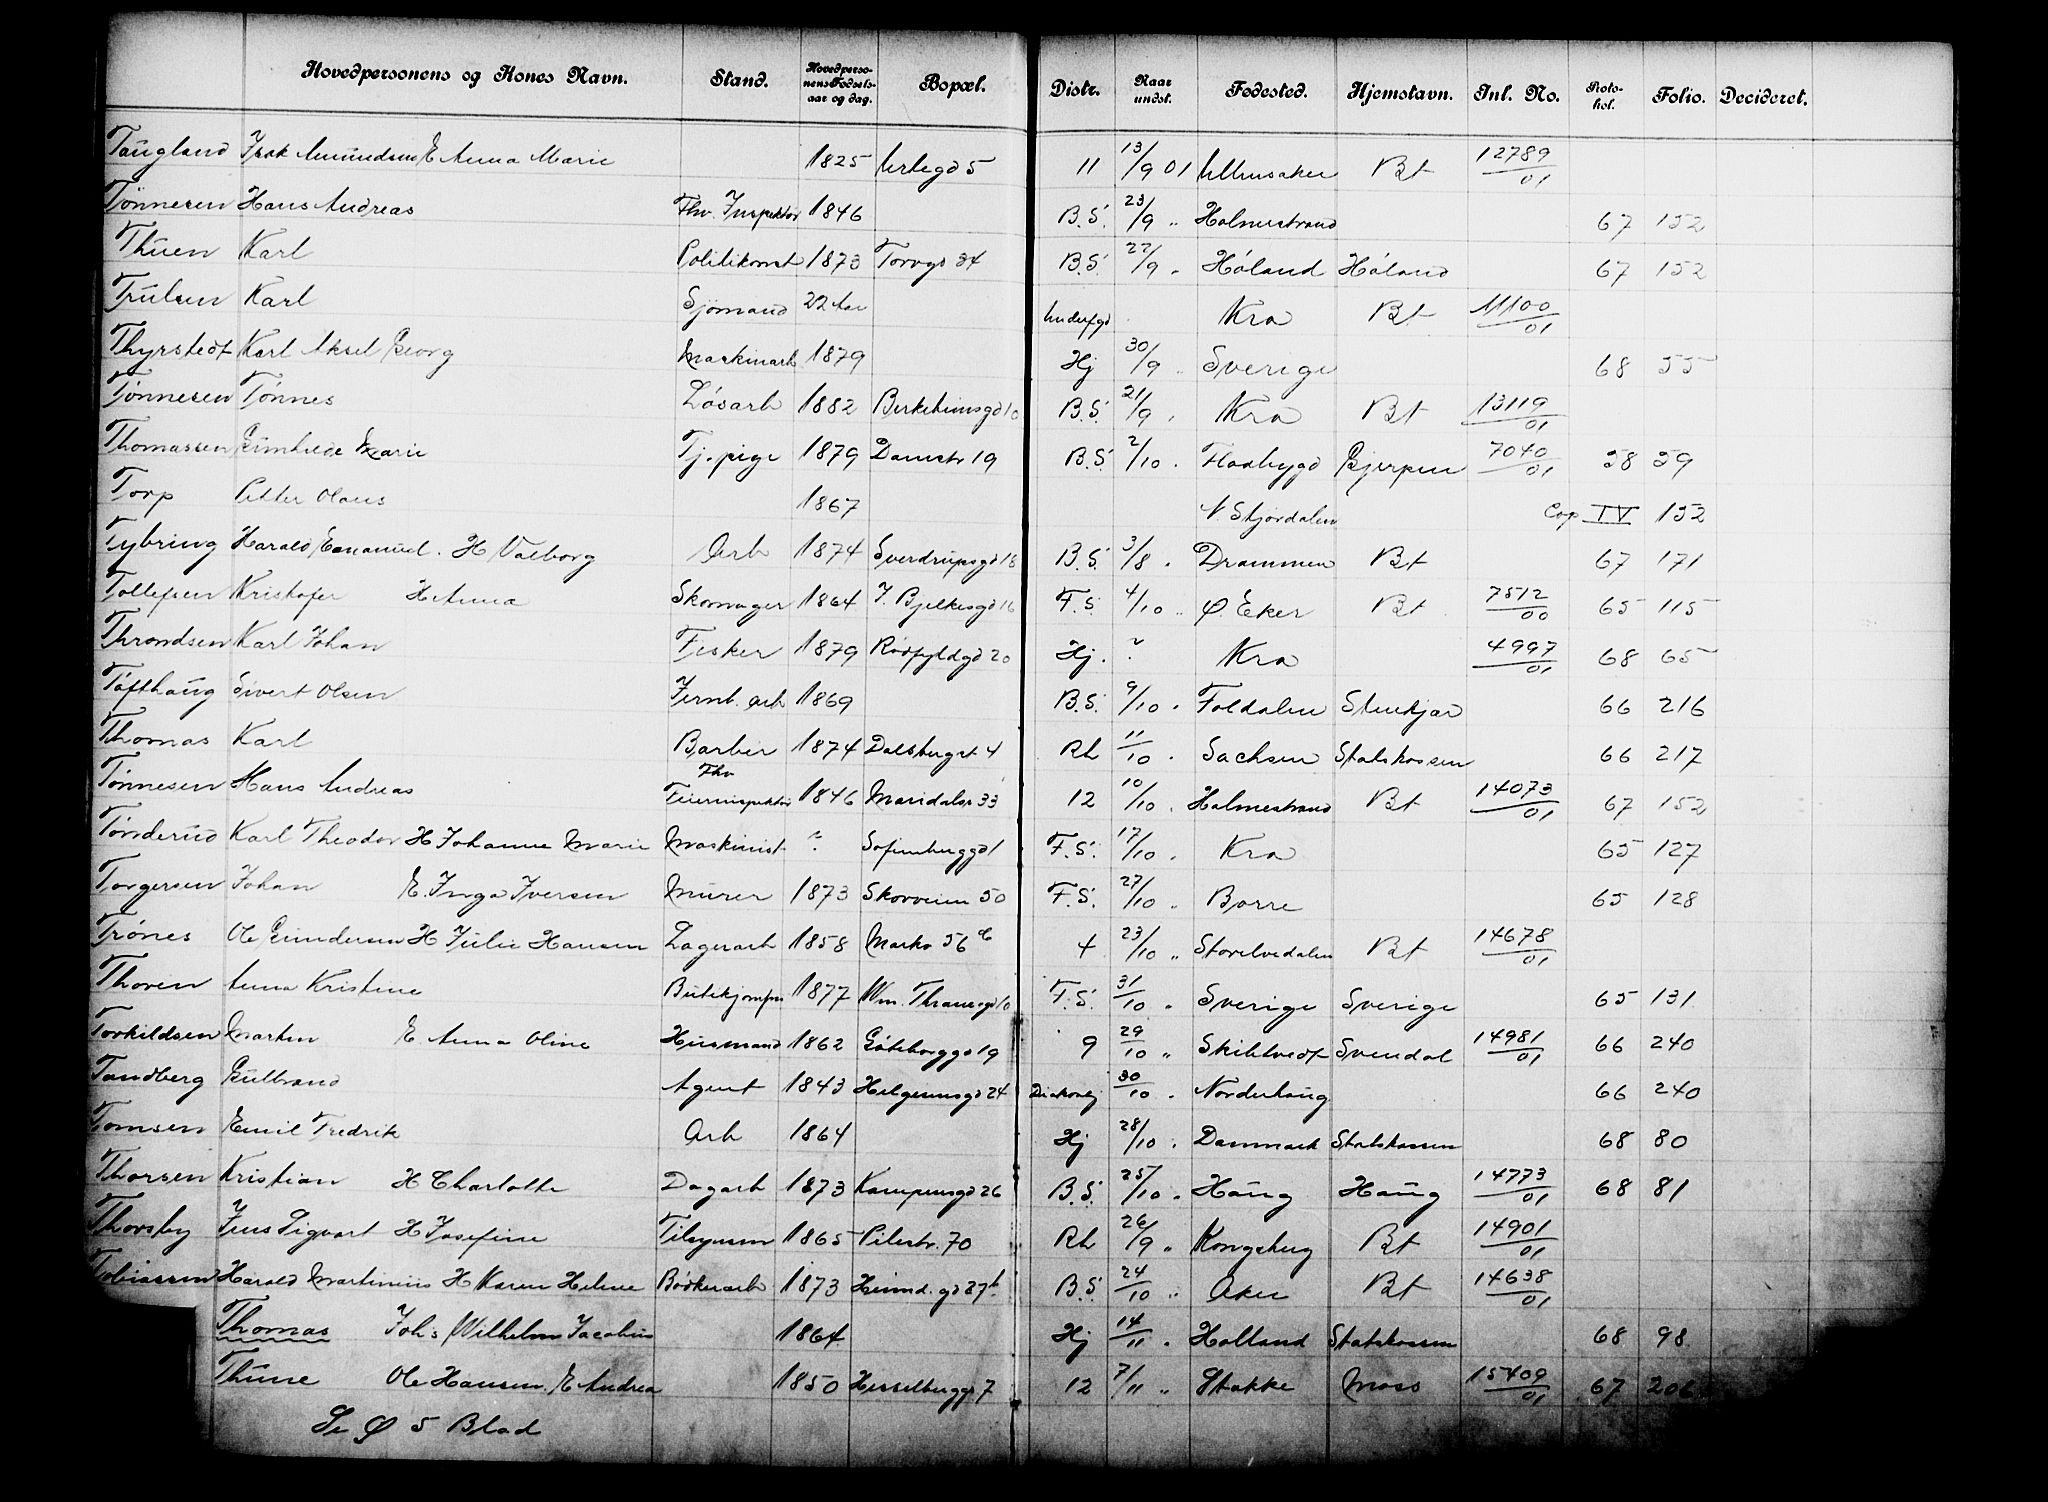 Hovedpersonens og Kones Navn. Stand. Hovedpersonens Fødselsaar og dag. Bopæl. Distr. Naar undst. Fødested. Hjemstavn. Inl. No. Protokol. Folio. Decideret.
Taugland Isak Amundsen E Anna Marie 1825 Urtegd 5 11 13/9 01 Ullensaker Bt 12789/01
Tønnesen Hans Andreas Fhv. Inspektør 1846 B.S. 23/9 " Holmestrand 67 152
Thuen Karl Politikonst 1873 Torvgd 34 B.S. 22/9 " Høland Høland 67 152
Trulsen Karl Sjømand 22 Aar Kra Bt 11100/01
Thyrstedt Karl Aksel Georg Maskinarb 1879 Hj 30/9 " Sverige 68 55
Tønnesen Tønnes Løsarb 1882 Birkebeinsgd 10 B.S. 21/9 " Kra Bt 13119/01
Thomassen Gunhilde Marie Tj. pige 1879 Damstr 19 B.S. 2/10 " Flaabygd Gjerpen 7040/01 58 59
Torp Petter Olaus 1867 N. Stjørdalen Cop IV 152
Tybring Harald Emanuel. H Valborg Arb 1874 Sverdrupsgd 18 B.S. 3/8 " Drammen Bt 67 171
Tollefsen Kristofer H Anna Skomager 1864 J. Bjelkesgd 16 F.S. 4/10 " Ø. Eker Bt 7512/00 65 115
Throndsen Karl Johan Fisker 1879 Rødfyldgd 20 Hj. " Kra 4997/01 68 65
Tøfthaug Sivert Olsen Jernb. arb 1869 B.S. 9/10 " Foldalen Stenkjær 66 216
Thomas Karl Barber 1874 Dalsbergst 4 Rh 11/10 " Sachsen Statskassen 66 217
Tønnesen Hans Andreas Fhv Feierinspektør 1846 Maridalsv 33 12 10/10 " Holmestrand Bt 14073/01 67 152
Tønderud Karl Theodor H Johanne Marie Maskinist " Sofienberggd 1 F.S. 17/10 " Kra 65 127
Torgersen Johan E. Inga Iversen Murer 1873 Skovveien 50 F.S. 27/10 " Borre 65 128
Trønes Ole Gundersen H Julie Hansen Lagerarb 1858 Markv 56 c 4 23/10 " Storelvedalen Bt 14678/01
Thoren Anna Kristine Butikjomfru 1877 Wm. Thranesgd 10 F.S. 31/10 " Sverige Sverige 65 131
Torkildsen Martin E. Anna Oline Husmand 1862 Göteborggd 19 9 29/10 " Skibtvedt Svendal 14981/01 66 240
Tandberg Gulbrand Agent 1843 Helgesensgd 24 Diakonhj 30/10 " Norderhaug 66 240
Tomsen Emil Fredrik Arb 1864 Hj 28/10 " Danmark Statskassen 68 80
Thorsen Kristian H Charlotte Dagarb 1873 Kampensgd 26 B.S. 25/10 " Haug Haug 14773/01 68 81
Thorsby Jens Sigvart H Josefine Tilsynsm 1865 Pilestr. 70 Rh 26/9 " Kongsberg Bt 14901/01
Tobiassen Harald Martinius H Karen Helene Bødkerarb 1873 Heimd. gd 27 b. B.S. 24/10 " Aker Bt 14638/01
Thomas Joh's Wilhelm Jacobus 1864 Hj 14/11 " Holland Statskassen 68 98
Thune Ole Hansen. E Andrea 1850 Hesselberggt 7 12 7/11 " Stokke Moss 15409/01 67 206
Se Ø 5 Blad